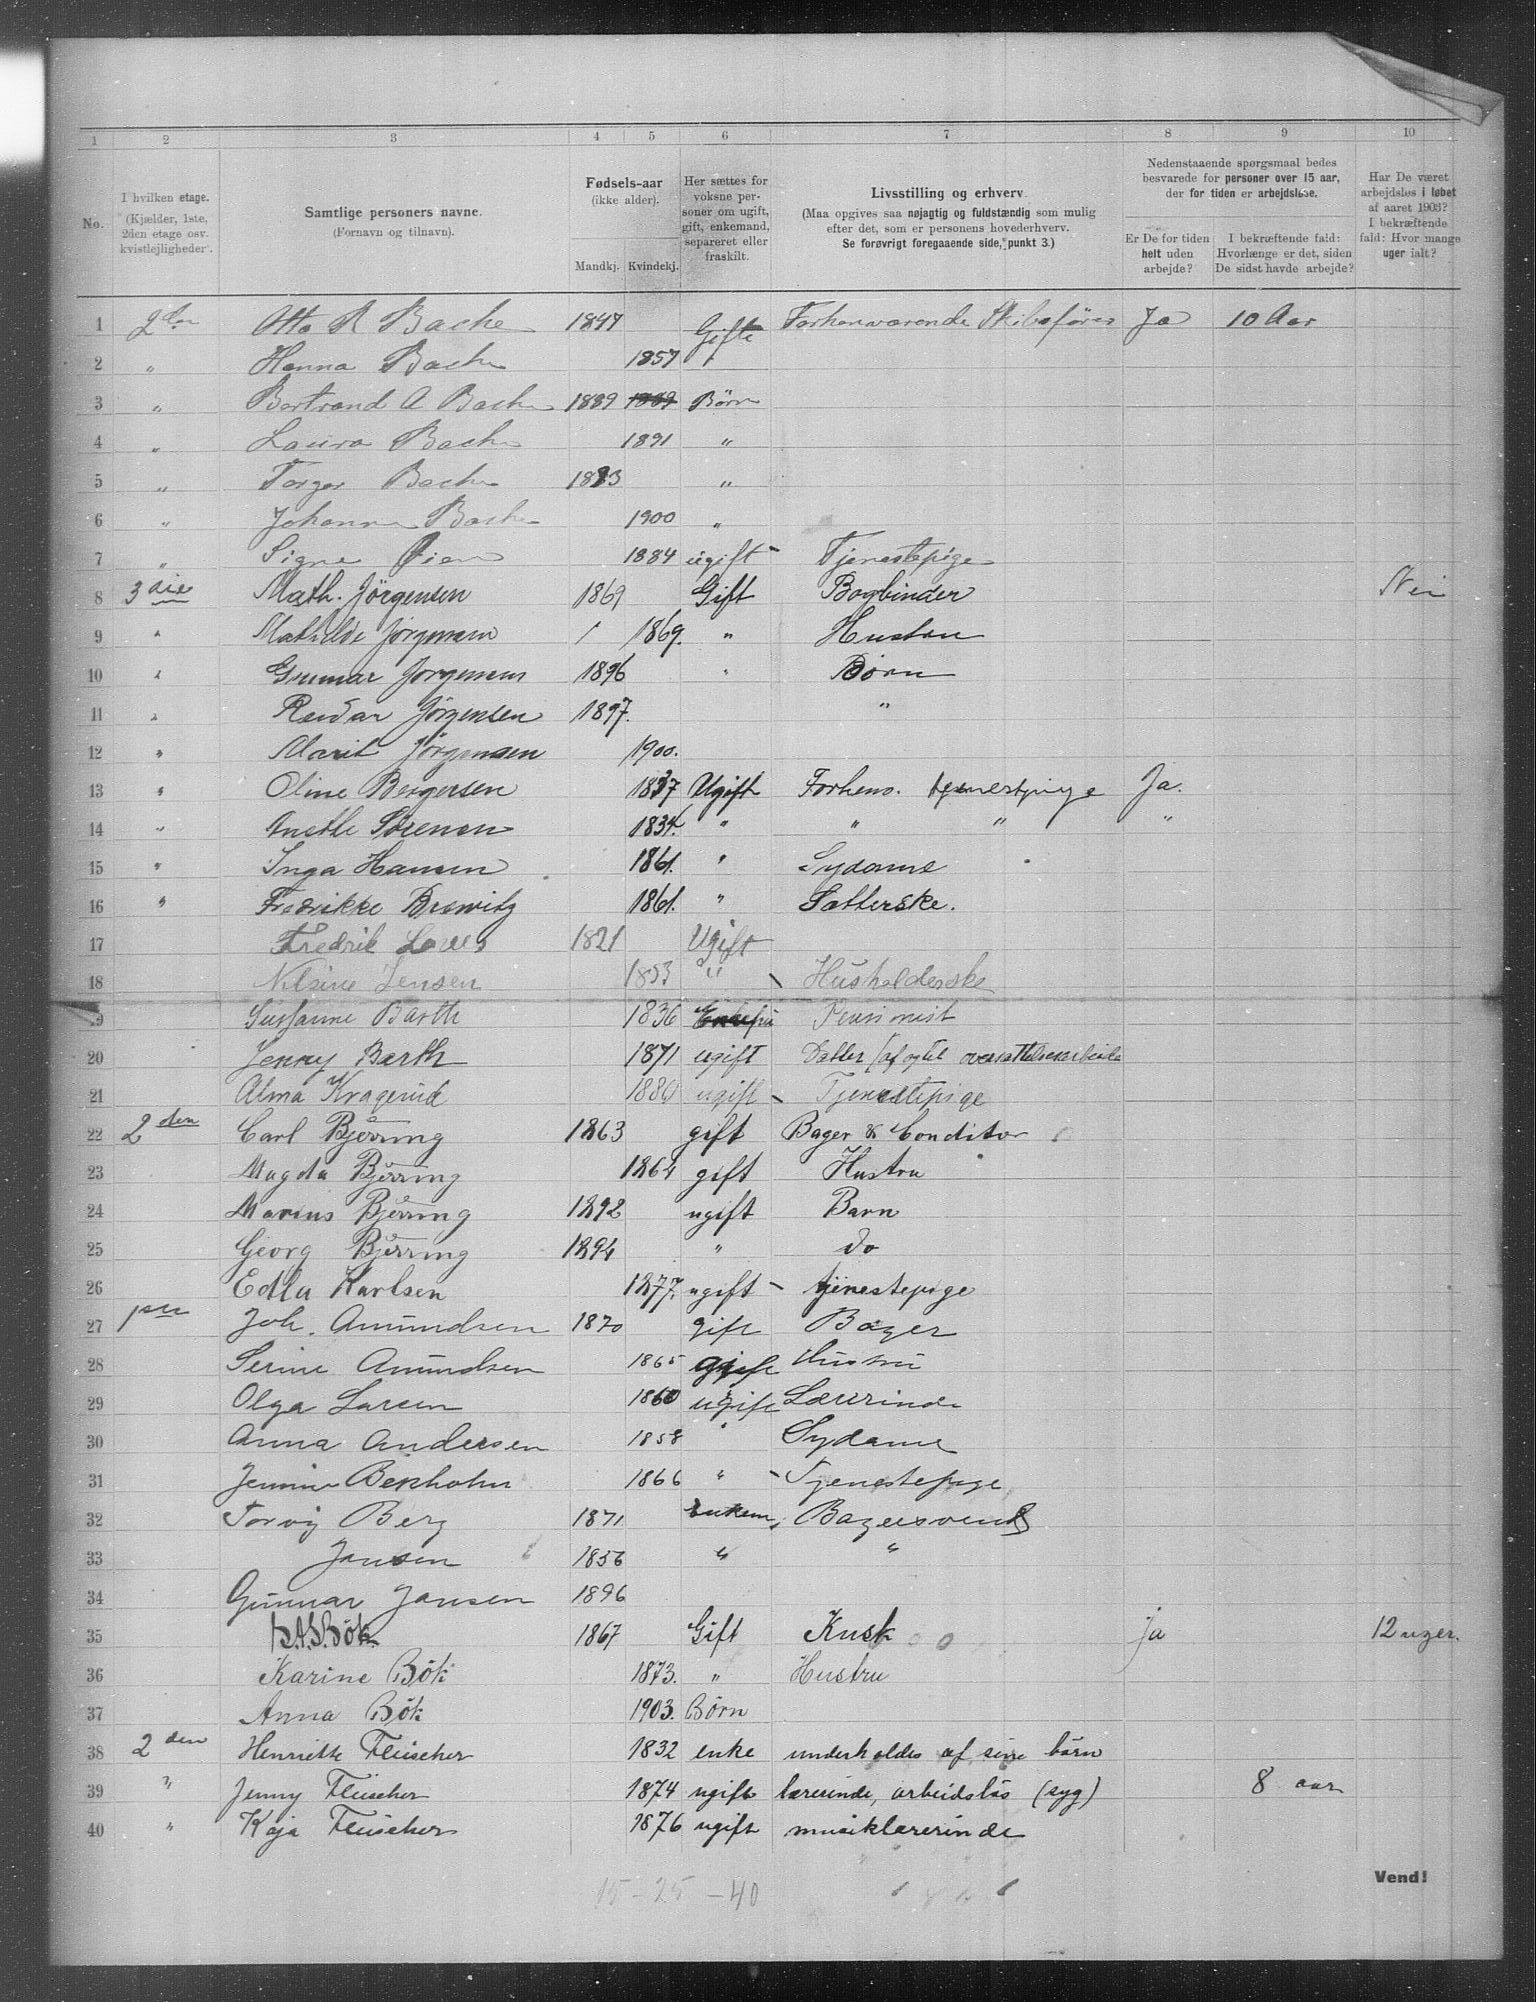 1 2 3 4 5 6 7 8 9 10
No.
I hvilken etage.
(Kjælder, 1ste,
2den etage osv.
kvistlejligheder).
Samtlige personers navne.
(Fornavn og tilnavn).
Fødsels-aar
(ikke alder).
Mandkj. Kvindekj.
Her sættes for
voksne per-
soner om ugift,
gift, enkemand,
separeret eller
fraskilt.
Livsstilling og erhverv.
(Maa opgives saa nøjagtig og fuldstændig som mulig
efter det, som er personens hovederhverv.
Se forøvrigt foregaaende side, punkt 3.)
Nedenstaaende spørgsmaal bedes
besvarede for personer over 15 aar,
der for tiden er arbejdsløse.
Er De for tiden
helt uden
arbejde?
I bekræftende fald:
Hvorlænge er det, siden
De sidst havde arbejde?
Har De været
arbejdsløs i løbet
af aaret 1903?
I bekræftende
fald: Hvor mange
uger ialt?
1 2den Otto A Bache 1847 Gifte Forhenværende Skibsfører Ja 10 Aar
2 " Hanna Bache 1857
3 " Bertrand A Bache 1889 1889 Børn
4 " Laura Bache 1891 "
5 " Torger Bache 1893 "
6 " Johanne Bache 1900 "
7 " Signe Øien 1884 ugift - Tjenestepige
8 3die Math. Jörgensen 1869 Gift Bogbinder Nei
9 " Mathilde Jörgensen 1869. " Hustru
10 " Gunnar Jorgensen 1896 " Börn
11 " Reidar Jörgensen 1897. "
12 " Marit Jörgensen 1900.
13 " Oline Bergersen 1837 Ugift Forhenv. tjenestpige Ja.
14 " Anethe Sörensen 1834. " " " "
15 " Inga Hansen 1861. " Sydame
16 " Fredrikke Drewitz 1861. " Sätterske.
17 Fredrik 1821 Ugift
18 Nilsine Jensen 1853 " Husholderske
19 Susanne Barth 1836 Enkefru Pensionist
20 Jenny Barth 1871 ugift Datter (af og til oversættelsesarbeide
21 Alma Kragerud 1880 ugift - Tjenestepige
22 2den Carl Bjerring 1863 gift Bager & Conditor
23 Magda Bjerring 1864 gift Hustru
24 Marius Bjerring 1892 ugift Barn
25 Georg Bjerring 1894 " do
26 Edla Karlsen 1877. ugift - tjenestepige
27 1ste Joh. Amundsen 1870 gift Bager
28 Serine Amundsen 1865 gift Hustru
29 Olga Larsen 1860 ugift Lærerinde
30 Anna Andersen 1858 " Sydame
31 Jennie Bekholm 1866 " - Tjenestepige
32 Torvig Berg 1871 Enkem. Bagersvend
33 Jansen 1856 " "
34 Gunnar Jansen 1896
35 K.A.S. Bök. 1867 Gift Kusk ja 12 uger.
36 Karine Bök 1873. " Hustru
37 Anna Bök 1903. Børn
38 2den Henriette Fleischer 1832 enke underholdes af sine börn
39 " Jenny Fleischer 1874 ugift lærerinde, arbeidslös (syg) 8 aar
40 " Kaja Fleischer 1876 ugift musiklærerinde
Vend!
15 - 25 - 40